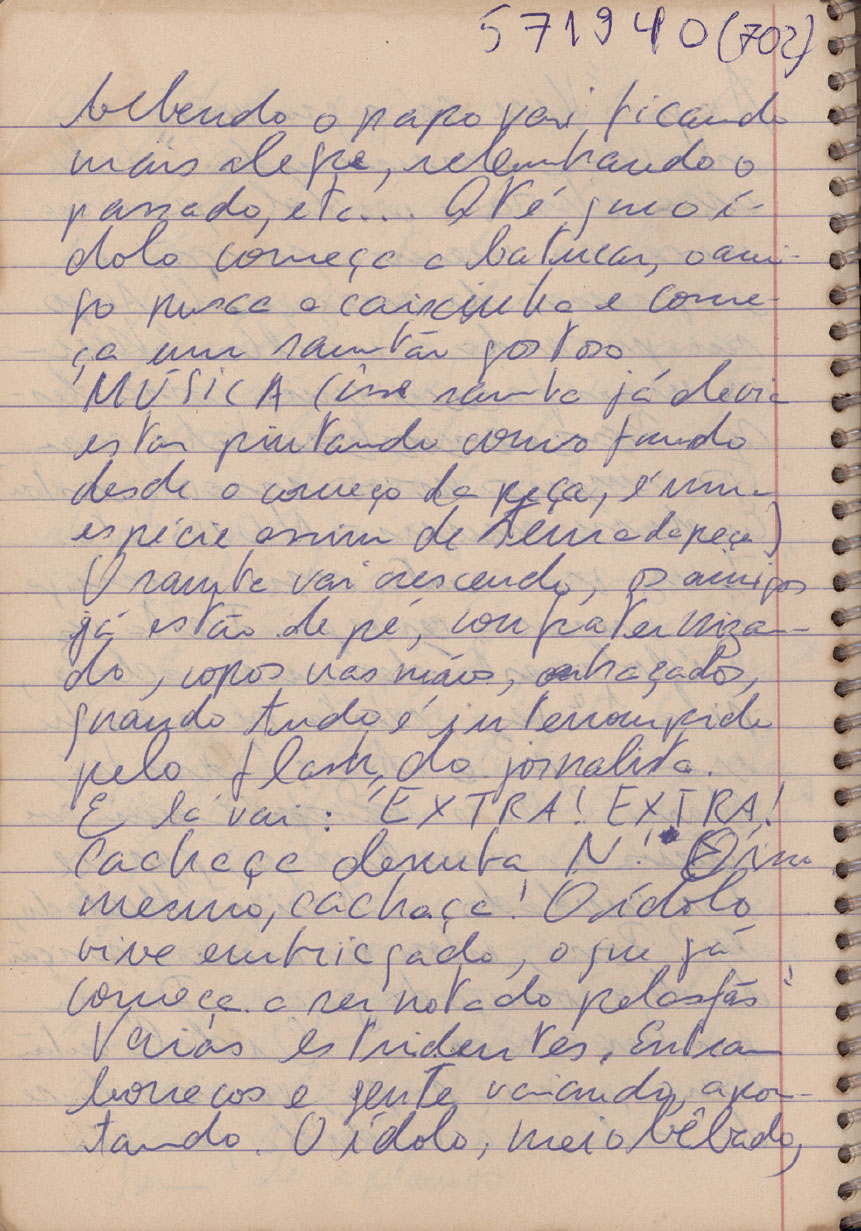 571940(702)
bebendo o papo vai ficando
mais alegre, relembrando o
passado, etc... Até que o í-
dolo começa a batucar, o ami-
go puxa a caixinha e come-
ça um sambão gostoso
MÚSICA (êsse samba já devia
estar pintando como fundo
desde o começo da peça, é uma
espécie assim de tema da peça)
O samba vai crescendo, os amigos
já estão de pé, confraterniza-
do, copos nas mãos, abraçados,
quando tudo é interrompido
pelo flash do jornalista.
E lá vai: "EXTRA! EXTRA!
Cachaça derruba N!" É isso
mesmo, cachaça! O ídolo
vive embriagado, o que já
começa a ser notado pelas fãs"
Vaias estridentes. Entram
bonecos e gente vaiando, apon-
tando. O ídolo, meio bêbado,